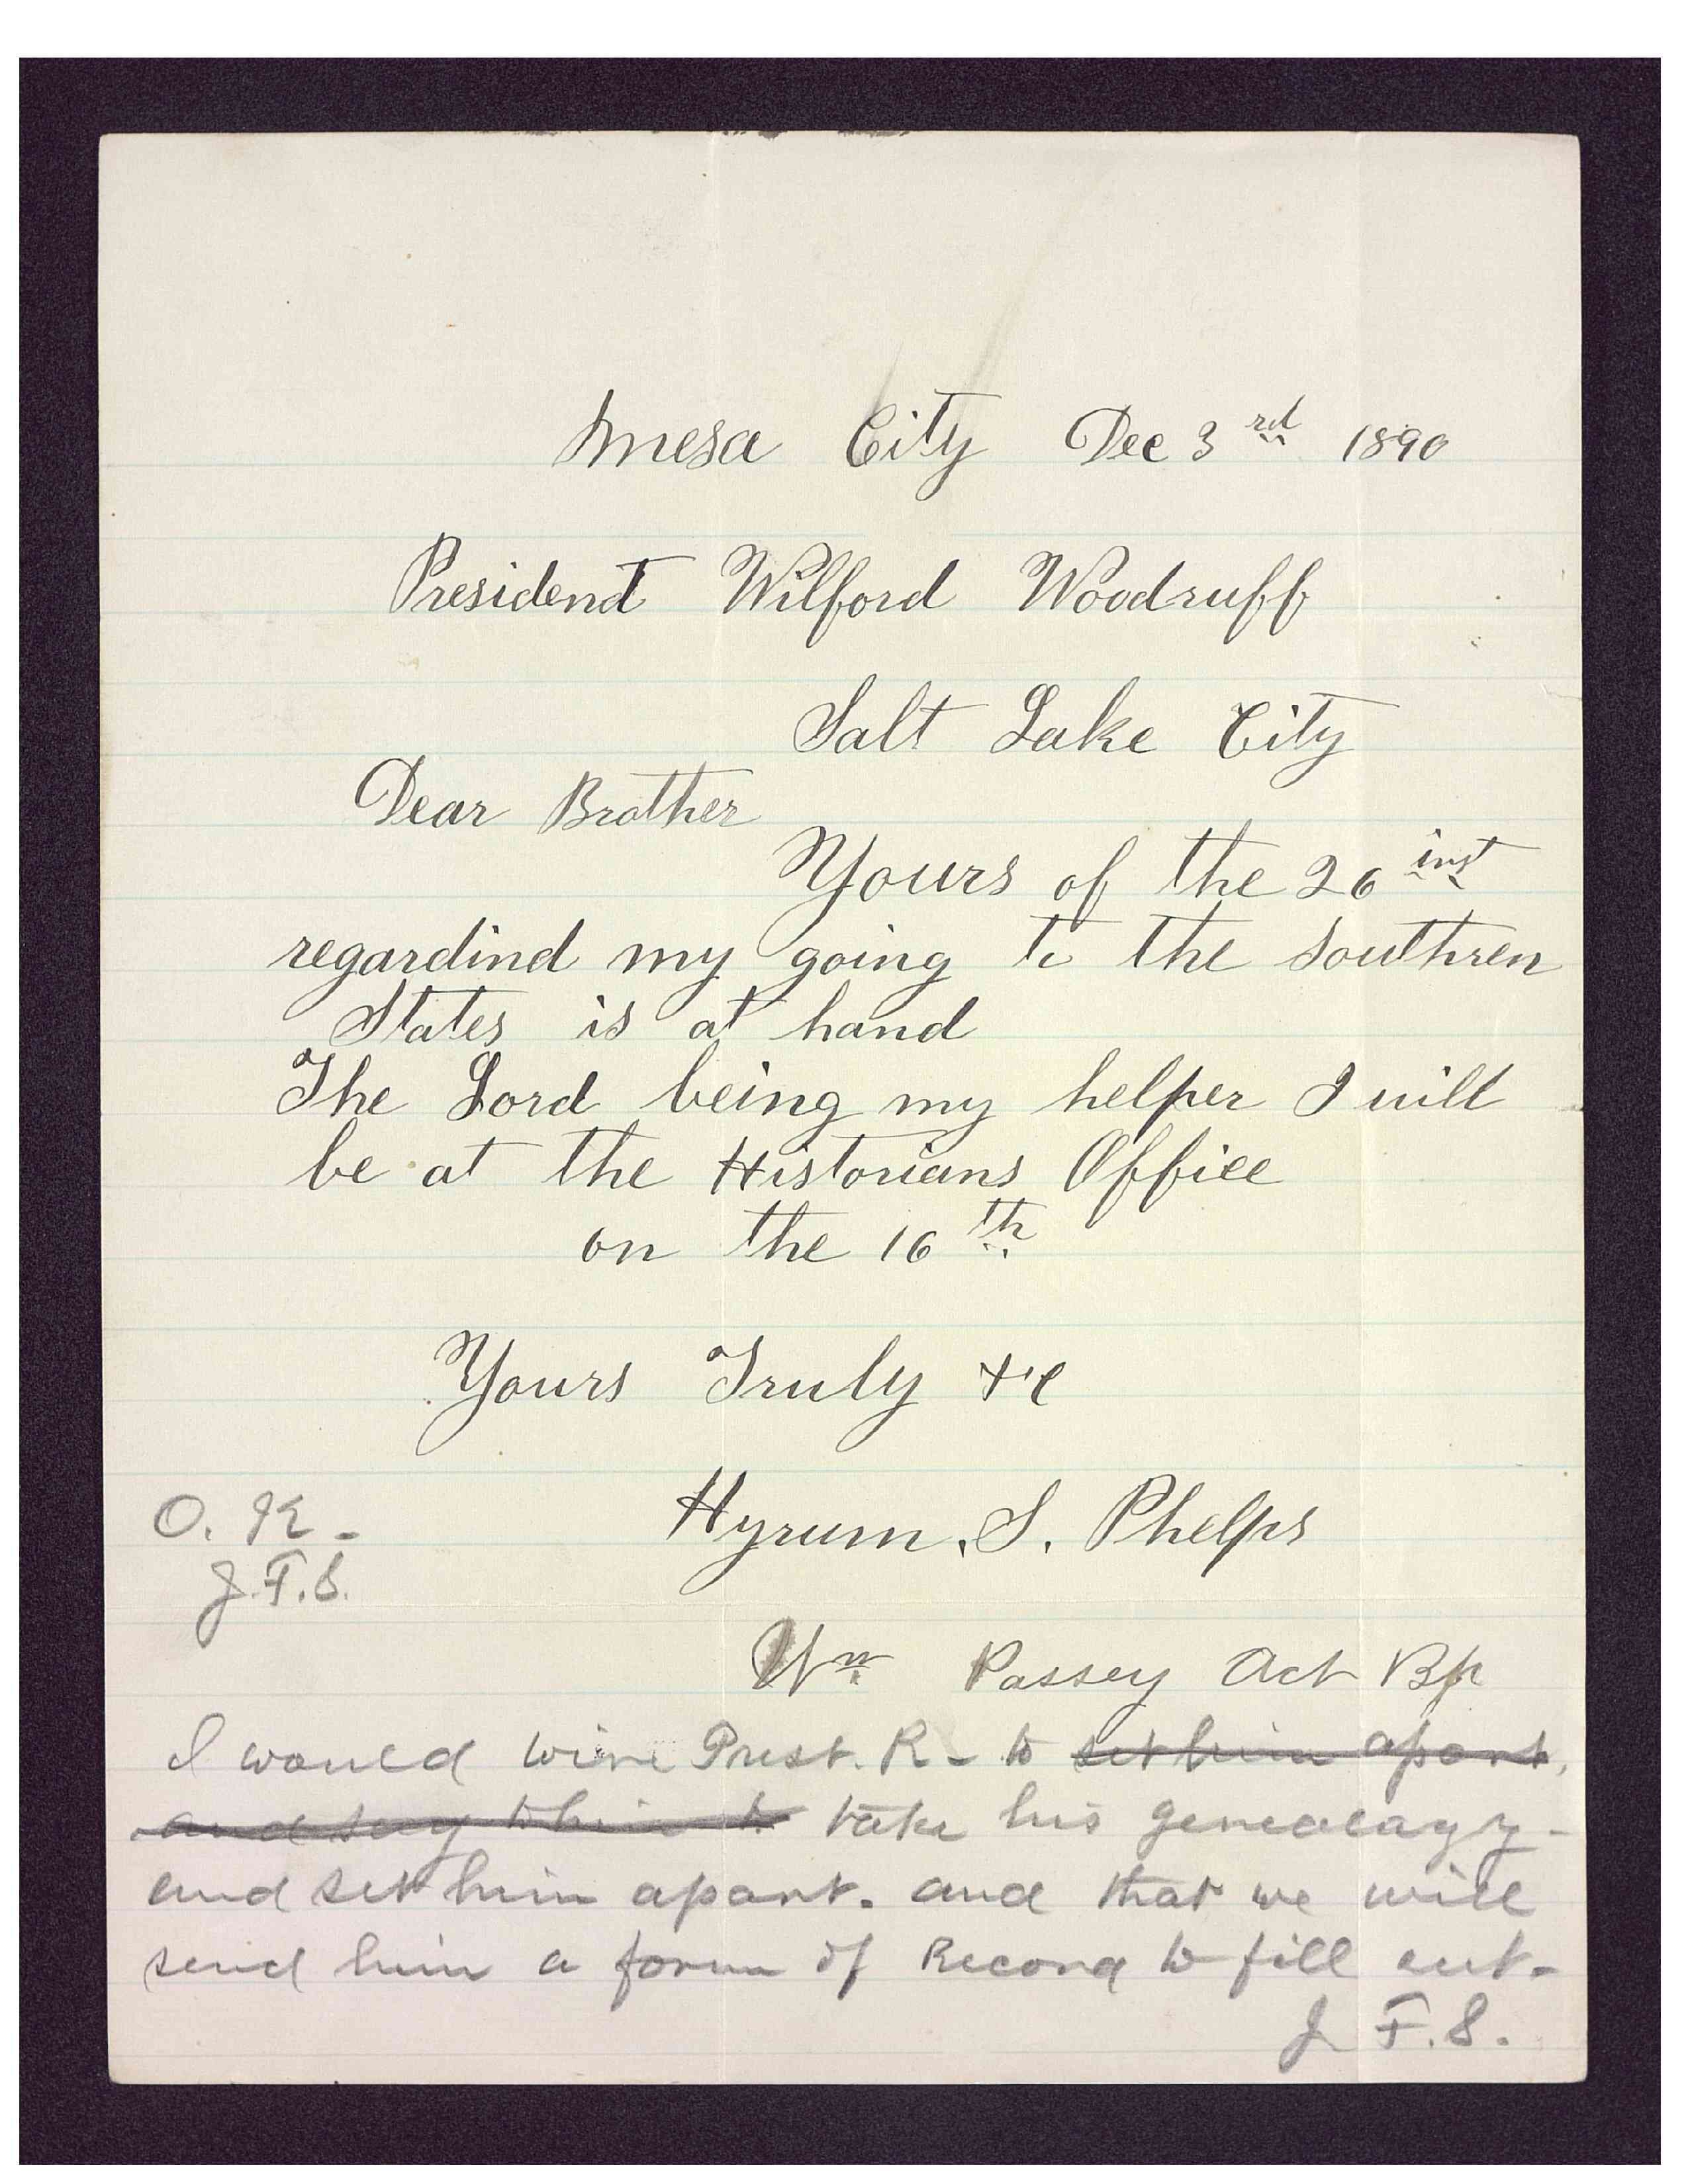 Mesa City Dec 3rd 1890
President Wilford Woodruff
Salt Lake City
Dear Brother
Yours of the 26 inst
regardind my going to the Southren
States is at hand
The Lord being my helper I will
be at the Historians Office
on the 16th
Yours Truly &c
Hyrum. S. Phelps
O. K-
J. F. S.
Wm Passey Act Bp
I would wire Prest. R- to set him apart,
and say to him to take his genealogy-
and set him apart. and that we will
send him a form of Record to fill out-
J F. S.